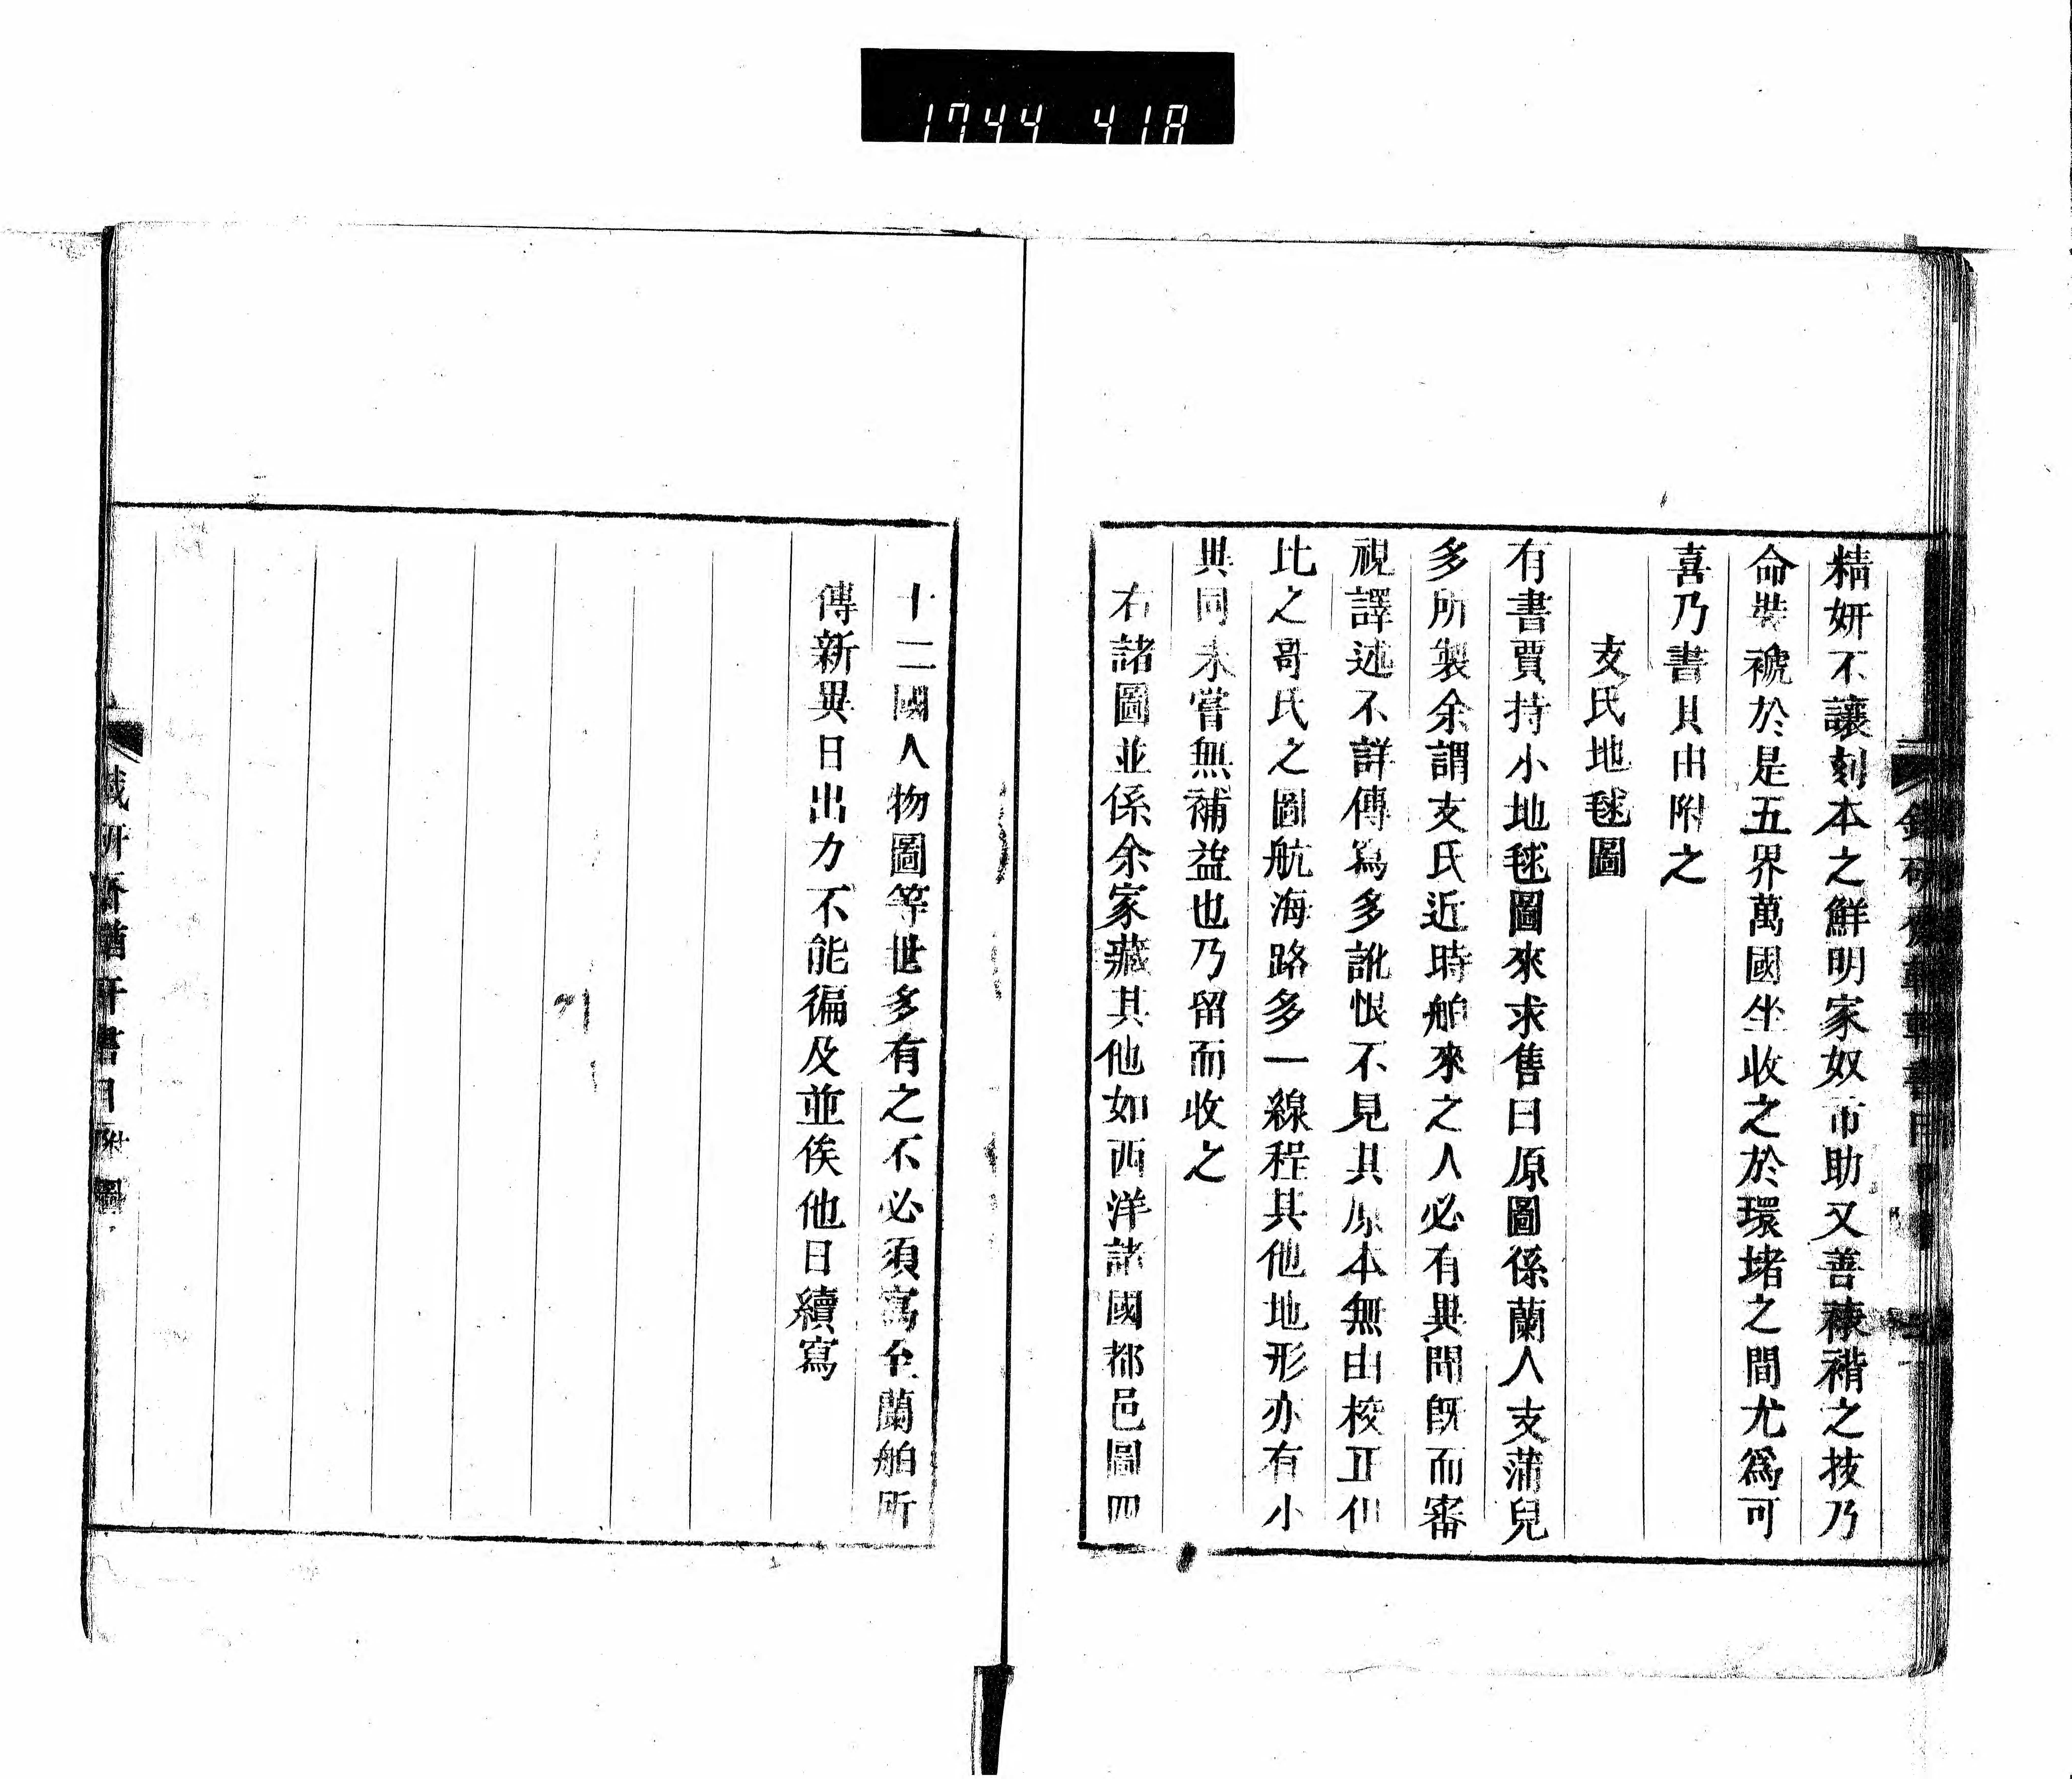 1744 418
精妍不讓刻本之鮮明家奴市助又善裱褙之技乃
命裝褫於是五界萬國坐收之於環堵之間尤爲可
喜乃書其由附之
支氏地毬圖
有書賈持小地毬圖來求售曰原圖係蘭人支蒲兒
多所製余謂支氏近時舶來之人必有異聞旣而審
視譯述不詳傳寫多訛恨不見其原本無由校正但
比之哥氏之圖航海路多一線程其他地形亦有小
異同未嘗無補益也乃留而收之
右諸圖並係余家藏其他如西洋諸國都邑圖四
十二國人物圖等世多有之不必須寫至蘭舶所
傳新異日出力不能徧及並俟他日續寫
鐵研齋輶軒書目 附 圖